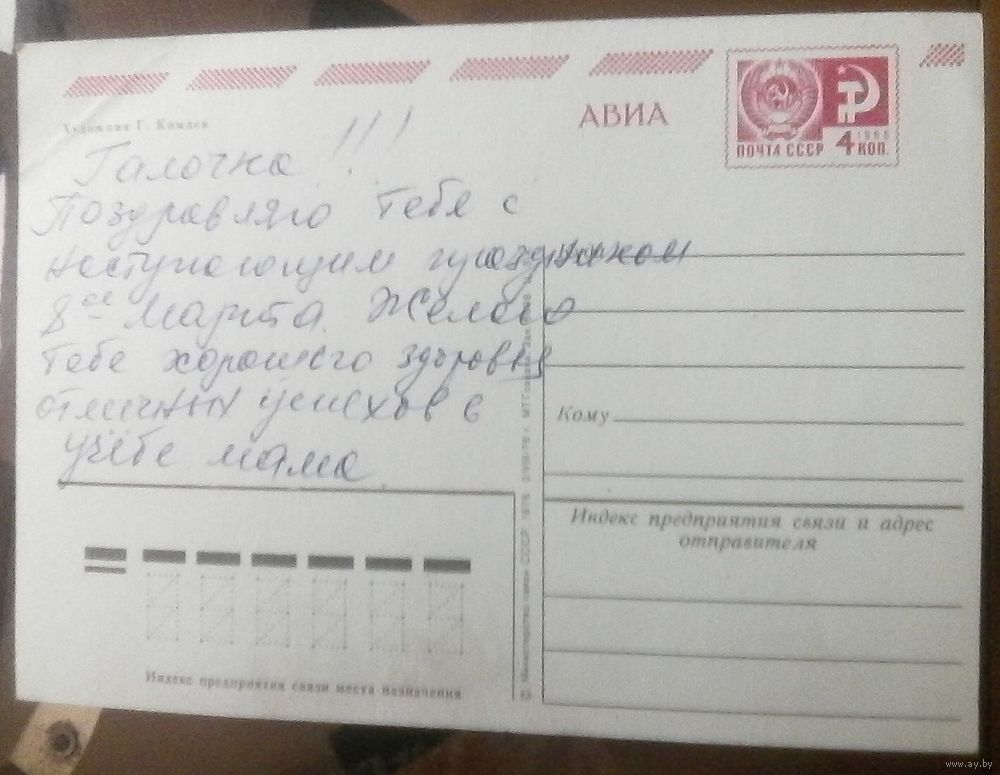 Художник Г. Комлев
АВИА
ПОЧТА СССР 4 КОП.
1966
Галочка !!!
Поздравляю тебя с
наступающим праздником
8ое Марта. Желаю
тебе хорошего здоровья
отличных успехов в
учёбе мама.
Кому
Индекс предприятия связи и адрес
отправителя
Индекс предприятия связи места назначения
© Министерство связи СССР. 1976
www.ay.by